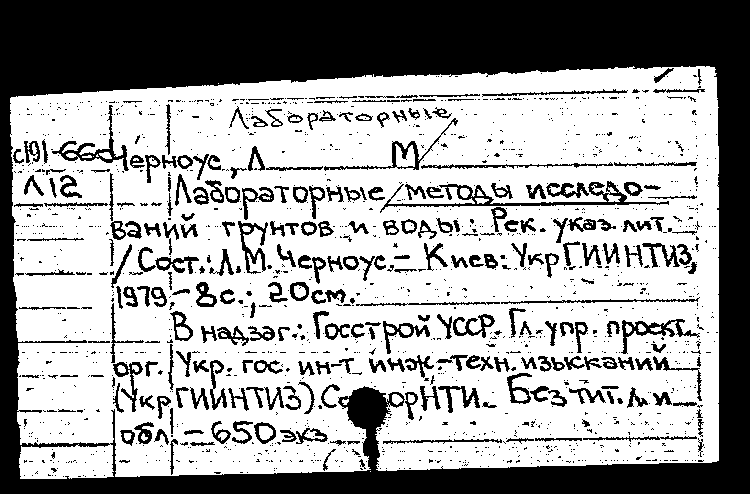 Лабораторные
с191-660 Черноус, Л М
Л12 Лабораторные методы исследо-
ваний грунтов и воды: Рек. указ. лит.
/Сост.: Л.М. Черноус.- Киев: УкрГИИНТИЗ,
1979.- 8с.; 20см.
В надзаг.: Госстрой УССР. Гл. упр. проект.
орг. Укр. гос. ин-т инж.-техн. изысканий
(УкрГИИНТИЗ). НТИ. Без тит. л. и
обл. - 650 экз